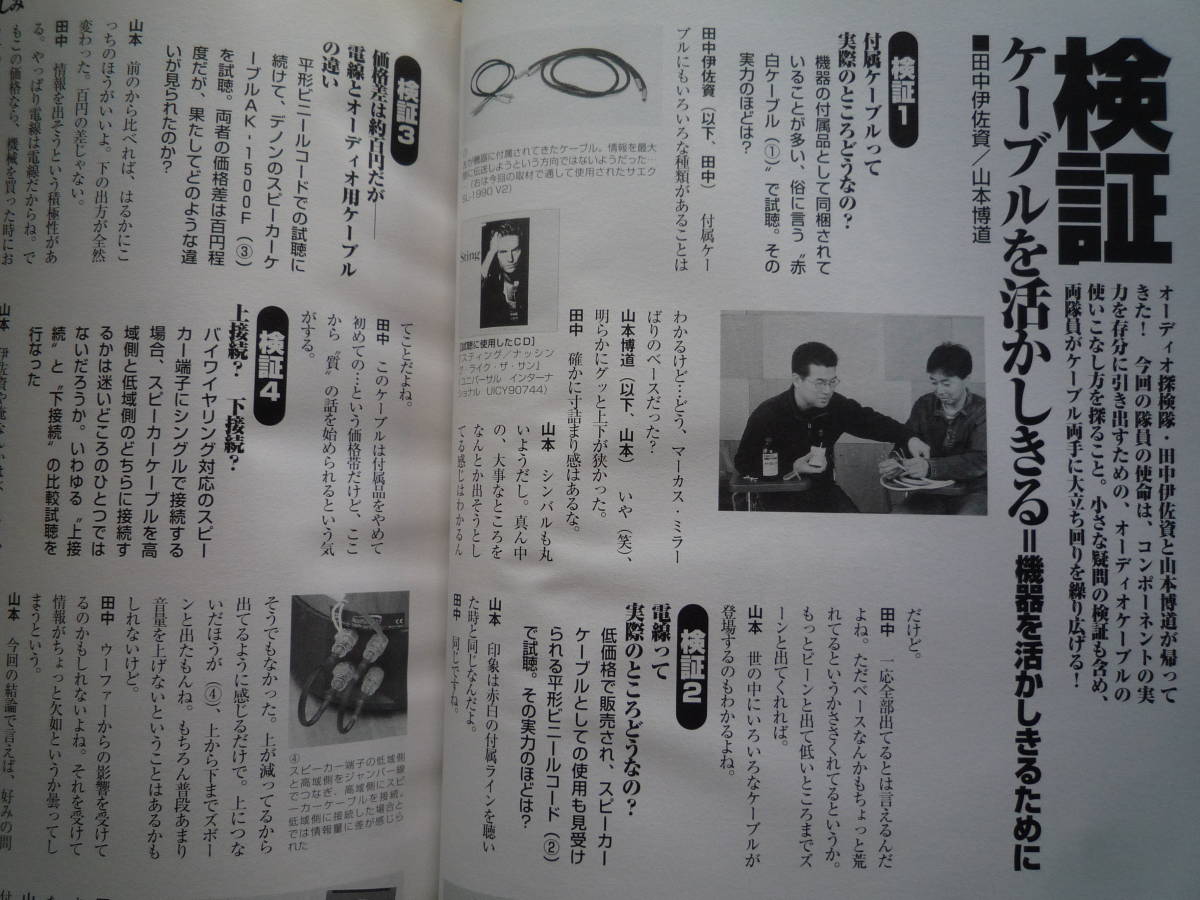 検証
ケーブルを活かしきる＝機器を活かしきるために
■田中伊佐資／山本博道
オーディオ探検隊・田中伊佐資と山本博道が帰って
きた！　今回の隊員の使命は、コンポーネントの実
力を存分に引き出すための、オーディオケーブルの
使いこなし方を探ること。小さな疑問の検証も含め、
両隊員がケーブル両手に大立ち回りを繰り広げる！
検証1
付属ケーブルって
実際のところどうなの？
機器の付属品として同梱されて
いることが多い、俗に言う〝赤
白ケーブル（①）で試聴。その
実力のほどは？
田中伊佐資（以下、田中）　付属ケー
ブルにもいろいろな種類があることは
わかるけど…どう、マーカス・ミラー
ばりのベースだった？
山本博道（以下、山本）　いや（笑）、
明らかにグッと上下が狭かった。
田中　確かに寸詰まり感はあるな。
山本　シンバルも丸
いようだし。真ん中
の、大事なところを
なんとか出そうとし
てる感じはわかるん
だけど。
田中　一応全部出てるとは言えるんだ
よね。ただベースなんかもちょっと荒
れてるというかささくれてるというか。
もっとビーンと出て低いところまでズ
ーンと出てくれれば。
山本　世の中にいろいろなケーブルが
登場するのもわかるよね。
検証2
電線って
実際のところどうなの？
低価格で販売され、スピーカー
ケーブルとしての使用も見受け
られる平形ビニールコード（②）
で試聴。その実力のほどは？
山本　印象は赤白の付属ラインを聴い
た時と同じなんだよ。
田中　同じですね。
が機器に付属されてきたケーブル。情報を最大
に伝送しようという方向ではないようだった…
（右は今回の取材で通して使用されたサエク
SL-1990 V2）
Sting
［試聴に使用したCD］
『スティング／ナッシン
グ・ライク・ザ・サン』
（ユニバーサル インターナ
ショナル UICY90744）
検証3
価格差は約百円だが――
電線とオーディオ用ケーブル
の違い
平形ビニールコードでの試聴に
続けて、デノンのスピーカーケ
ーブルAK-1500F（③）
を試聴。両者の価格差は百円程
度だが、果たしてどのような違
いが見られたのか？
山本　前のから比べれば、はるかにこ
っちのほうがいいよ。下の出方が全然
変わった。百円の差じゃない。
田中　情報を出そうという積極性があ
る。やっぱり電線は電線だからね。で
もこの価格なら、機械を買った時にお
てことだよね。
田中　このケーブルは付属品をやめて
初めての…という価格帯だけど、ここ
から〝質〟の話を始められるという気
がする。
検証4
上接続？　下接続？
バイワイヤリング対応のスピー
カー端子にシングルで接続する
場合、スピーカーケーブルを高
域側と低域側のどちらに接続す
るかは迷いどころのひとつでは
ないだろうか。いわゆる〝上接
続〟と〝下接続〟の比較試聴を
行なった
そうでもなかった。上が減ってるから
出てるように感じるだけで。上につな
いだほうが（④）、上から下までズボー
ンと出たもんね。もちろん普段あまり
音量を上げないということはあるかも
しれないけど。
田中　ウーファーからの影響を受けて
るのかもしれないよね。それを受けて
情報がちょっと欠如というか曇ってし
まうという。
山本　今回の結論で言えば、好みの問
④
スピーカー端子の低域側
と高域側をジャンパー線
でつなぎ、高域側にスピ
ーカーケーブルを接続。
低域側に接続した場合と
では情報量に差が感じら
れた